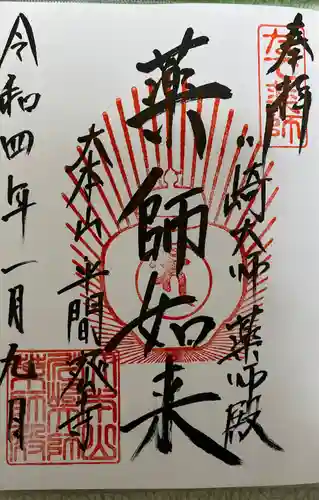 奉拝
川崎大師薬師殿
薬師如来
大本山平間寺
令和四年一月九日